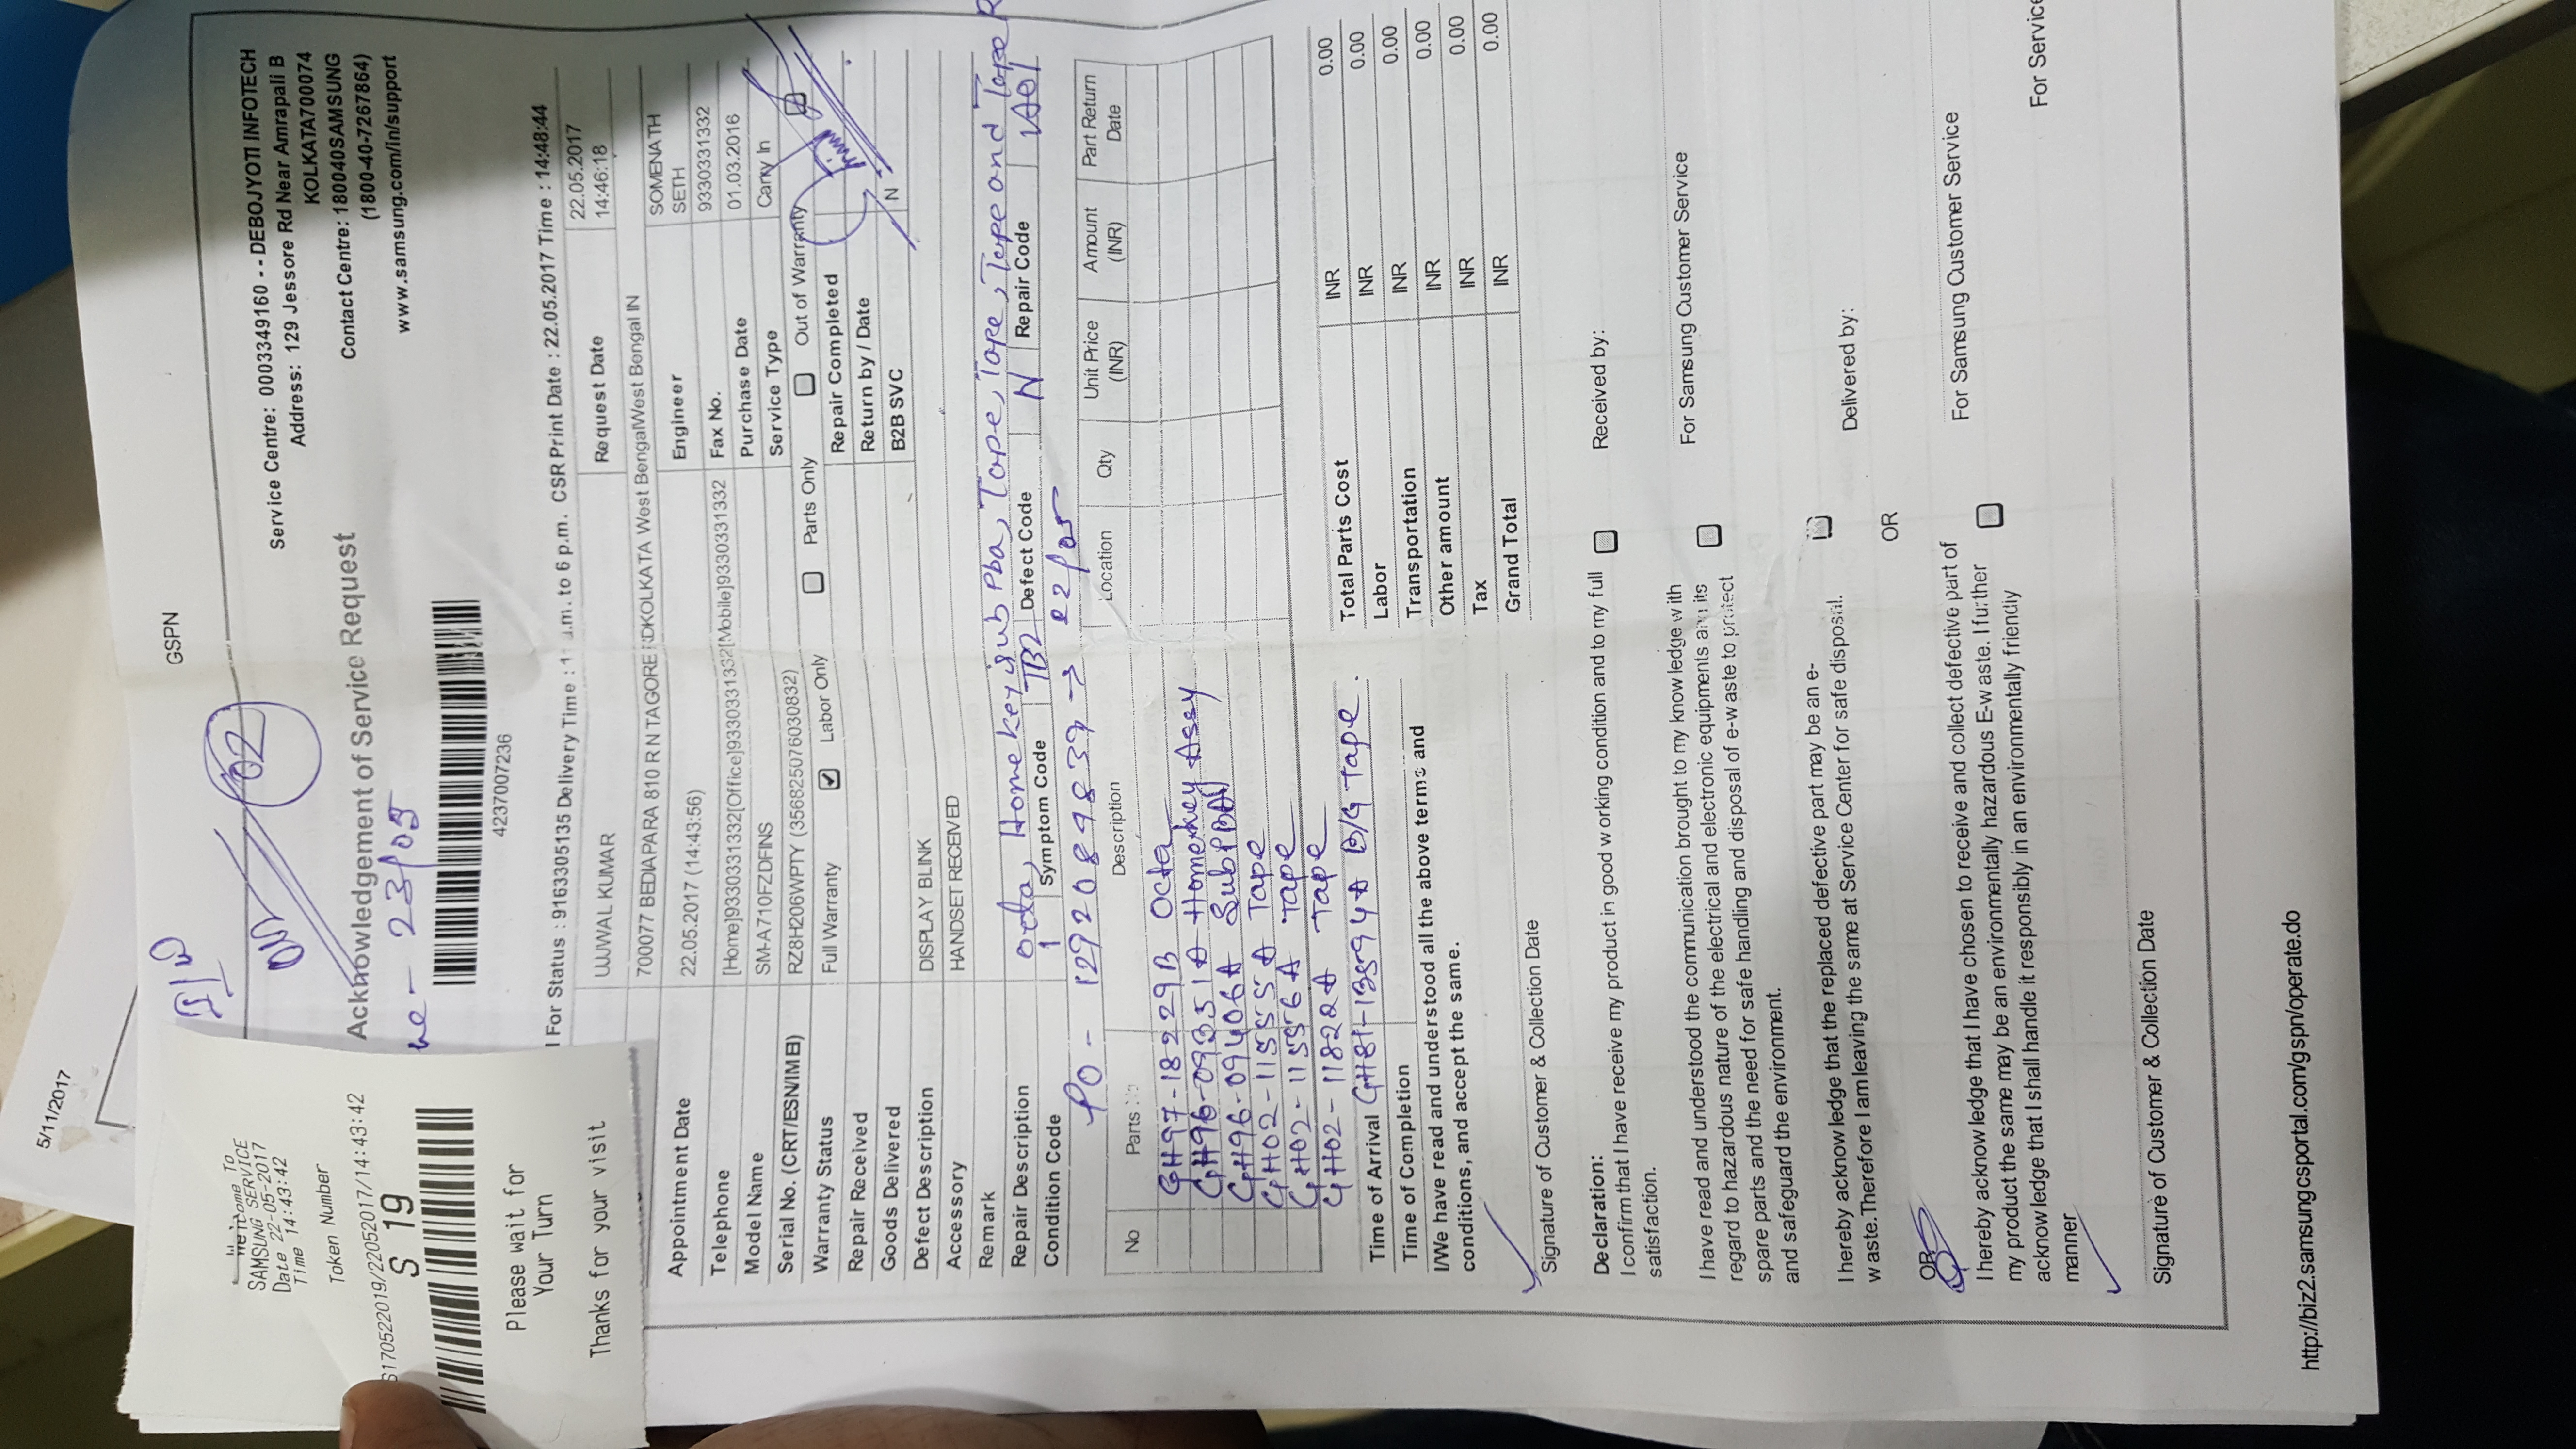 5/11/2017
GSPN
I/W
02
Welcome To
SAMSUNG SERVICE
Date 22-05-2017
Time 14:43:42
Token Number
S170522019/22052017/14:43:42
S 19
Please wait for
Your Turn
Thanks for your visit
Service Centre: 0003349160 - - DEBOJYOTI INFOTECH
Address: 129 Jessore Rd Near Amrapali B
KOLKATA700074
Contact Centre: 180040SAMSUNG
(1800-40-7267864)
www.samsung.com/in/support
Acknowledgement of Service Request
23/05
4237007236
l For Status : 9163305135 Delivery Time : a.m. to 6 p.m. CSR Print Date : 22.05.2017 Time : 14:48:44
UJJWAL KUMAR Request Date 22.05.2017
14:46:18
700077 BEDIAPARA 810 R N TAGORE RDKOLKATA West BengalWest Bengal IN
Appointment Date 22.05.2017 (14:43:56) Engineer SOMENATH
SETH
Telephone [Home]9330331332[Office]9330331332[Mobile]9330331332 Fax No. 9330331332
Model Name SM-A710FZDFINS Purchase Date 01.03.2016
Serial No. (CRT/ESN/IMEI) RZ8H206WPTY (356825076030832) Service Type Carry In
Warranty Status Full Warranty Labor Only Parts Only Out of Warranty
Repair Received Repair Completed
Goods Delivered Return by / Date
B2B SVC N
Defect Description DISPLAY BLINK
Accessory HANDSET RECEIVED
Remark
Repair Description Octa, Homekey, Sub Pba, Tape, Tape, Tape and Tape
Condition Code 1 Symptom Code TB2 Defect Code N Repair Code A01
PO - 1292089839 → 22/05
No Parts No Description Location Qty Unit Price (INR) Amount (INR) Part Return Date
GH97-18229B Octa
GH96-09351A Homekey Assy
GH96-09406A Sub PBA
GH02-11555A Tape
GH02-11556A Tape
GH02-11822A Tape
Time of Arrival GH81-13594A B/G Tape.
Time of Completion
I/We have read and understood all the above terms and
conditions, and accept the same.
Total Parts Cost INR 0.00
Labor INR 0.00
Transportation INR 0.00
Other amount INR 0.00
Tax INR 0.00
Grand Total INR 0.00
Signature of Customer & Collection Date
Declaration:
I confirm that I have receive my product in good working condition and to my full
satisfaction.
Received by:
I have read and understood the communication brought to my knowledge with
regard to hazardous nature of the electrical and electronic equipments and its
spare parts and the need for safe handling and disposal of e-waste to protect
and safeguard the environment.
For Samsung Customer Service
I hereby acknowledge that the replaced defective part may be an e-
waste.Therefore I am leaving the same at Service Center for safe disposal.
Delivered by:
OR
OR
I hereby acknowledge that I have chosen to receive and collect defective part of
my product the same may be an environmentally hazardous E-waste. I further
acknowledge that I shall handle it responsibly in an environmentally friendly
manner
For Samsung Customer Service
For Service
Signature of Customer & Collection Date
http://biz2.samsungcsportal.com/gspn/operate.do